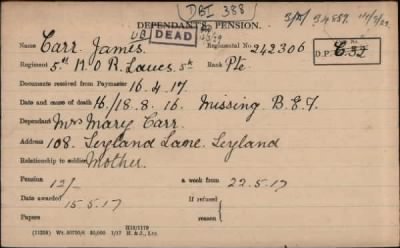 (DBI 388)
DEPENDANT'S PENSION.
Name Carr. James. DEAD Regimental No 242306
Regiment 5th K. O R. Lancs. 5th Rank Pte D.P. C.32
Documents received from Paymaster 16.4.17
Date and cause of death 16/18.8.16. Missing B.E.F.
Dependant Mrs Mary Carr.
Address 108. Leyland Lane. Leyland
Relationship to soldier Mother.
Pension 12/- a week from 22.5.17
Date awarded 15.5.17 If refused
Papers reason
(11258) Wt. 50730/6 50,000 1/17 H16/1179 H. & J., Ltd.